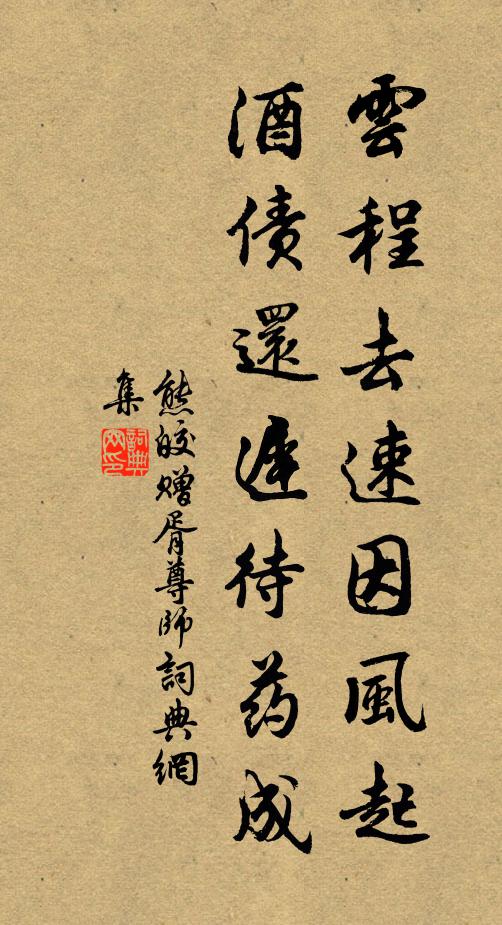 雲程去速因風起
酒債還遲待药成
熊皎赠胥尊師詞典網
集
詞典
网印